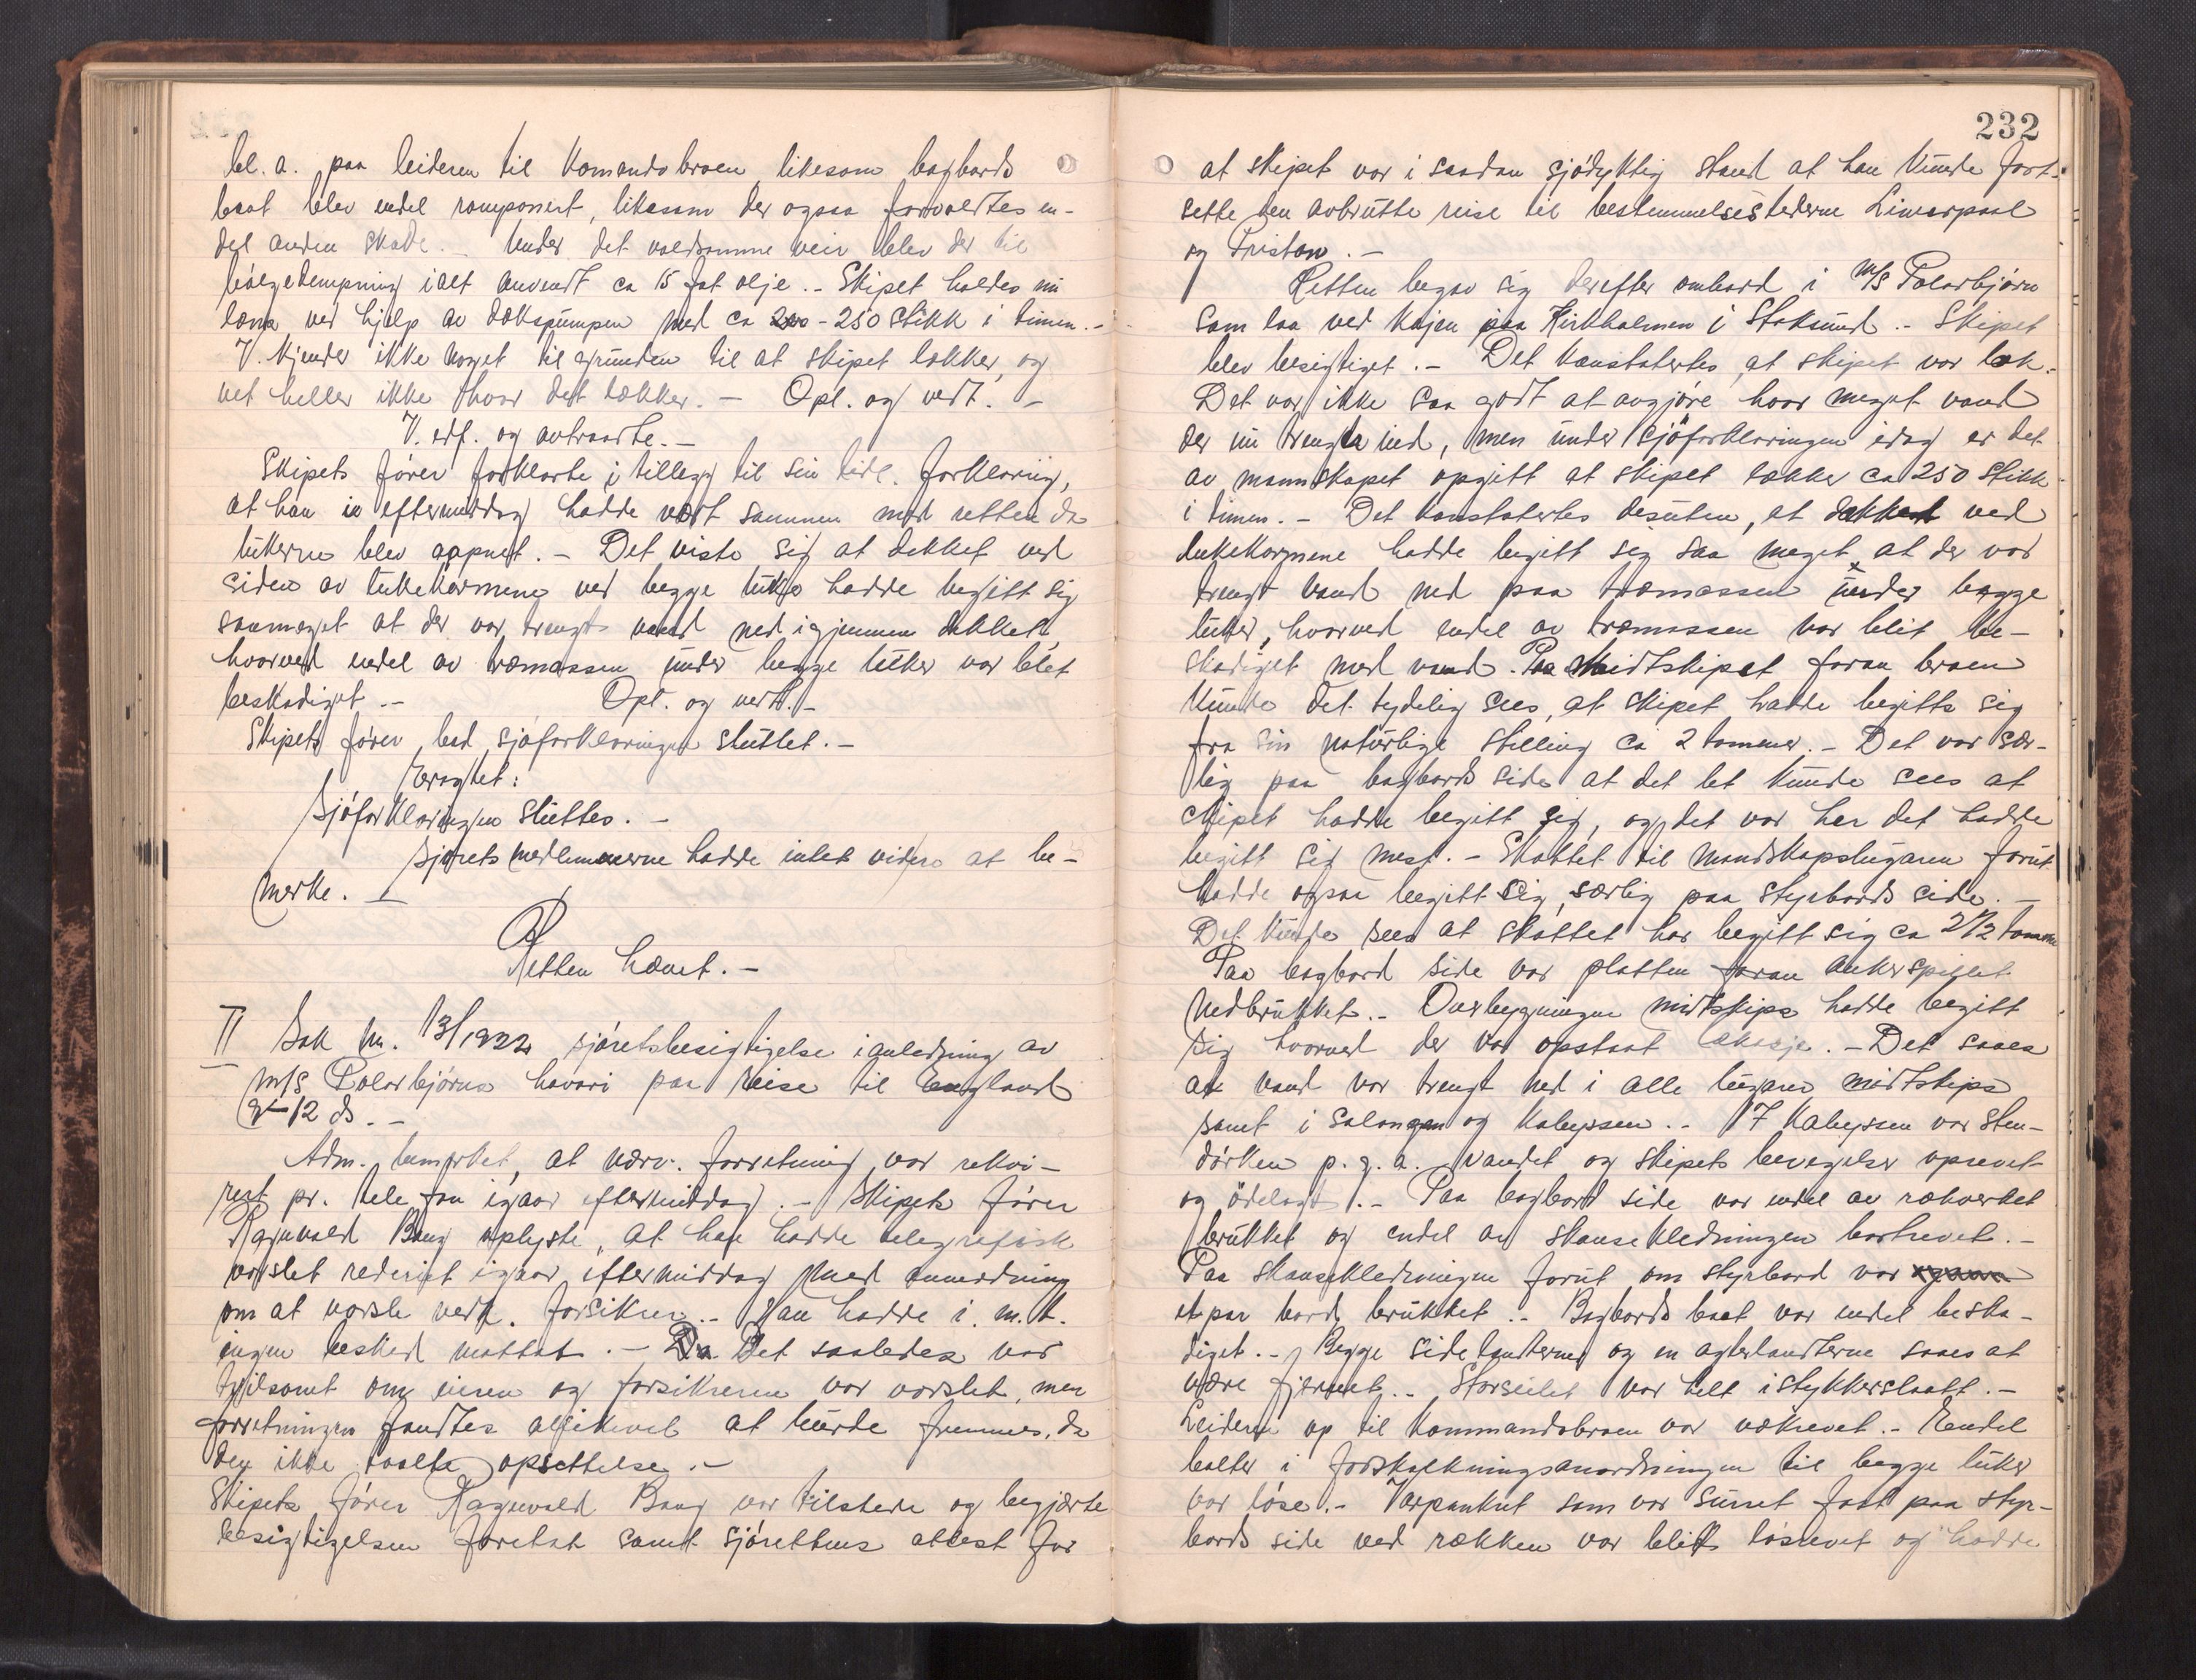 bl. a. paa leideren til Komandobroen, likesom bagbords
baat blev endel ramponert, likesom der ogsaa forvoldtes en-
del anden skade. – Under det voldsomme veir blev der til
bølgedempning ialt anvendt ca 15 fat olje. – Skipet holdes nu
læns ved hjelp av dækspumpen med ca 200 - 250 stikk i timen. –
V. kjender ikke noget til grunden til at skipet lækker, og
vet heller ikke hvor det lækker. – Opl. og vedt. –
V. erf. og avtraadte. –
Skipets fører forklarte i tillegg til sin tidl. forklaring,
at han i eftermiddag hadde vært sammen med retten da
lukerne blev aapnet. – Det viste sig at dekket ved
siden av lukekarmene ved begge luker hadde begitt sig
saameget at der var trengt vand ned igjennem dekket,
hvorved endel av træmassen under begge luker var blit
beskadiget. – Opl. og vedt. –
Skipets fører bad sjøforklaringen sluttet. –
Eragtet:
Sjøforklaringen sluttes. –
Sjørets medlemmerne hadde intet videre at be-
merke. –
Retten hævet. –
II Sak nr. 13/1922 sjøretsbesigtigelse i anledning av
m/s Polarbjørns havari paa reise til England
9-12 ds. –
Adm. bemerket, at nærv. forretning var rekvi-
rert pr. telefon igaar eftermiddag. – Skipets fører
Ragnvald Bang oplyste, at han hadde telegrafisk
varslet rederiet igaar eftermiddag med anmodning
om at varsle vedk. forsikrer. – Han hadde i. m. t.
ingen besked mottat. – Da Det saaledes var
tvilsomt om eieren og forsikreren var varslet, men
forretningen fandtes allikevel at burde fremmes, da
den ikke taalte opsettelse. –
Skipets fører Ragnvald Bang var tilstede og begjærte
besigtigelsen foretat samt sjørettens attest for
232
at skipet var i saadan sjødyktig stand at han kunde fort-
sette den avbrutte reise til bestemmelsesstederne Liverpool
og Preston. –
Retten begav sig derefter ombord i m/s Polarbjørn
som laa ved Kajen paa Kirkholmen i Stoksund. – Skipet
blev besigtiget. – Det konstatertes, at skipet var læk.
Det var ikke saa godt at avgjøre hvor meget vand
der nu trengte ind, men under sjøforklaringen idag er det
av mannskapet opgitt at skipet lækker ca 250 stikk
i timen. – Det konstatertes desuten, at dekket ved
lukekarmene hadde begitt seg saa meget, at der var
trengt vand ned paa træmassen under begge
luker, hvorved endel av træmassen var blit be-
skadiget med vand. Paa Midtskipet foran broen
kunde det tydelig sees, at skipet hadde begitt sig
fra sin naturlige stilling ca 2 tommer. – Det var sær-
lig paa bagbords side at det let kunde sees at
skipet hadde begitt sig, og det var her det hadde
begitt sig mest. – Skottet til mandskapslugaren forut
hadde ogsaa begitt sig, særlig paa styrbords side. –
Det kunde sees at skottet har begitt sig ca 2 1/2 tomme
Paa bagbord side var platten foran ankerspillet
nedbrukket. – Overbygningen midtskips hadde begitt
sig hvorved der var opstaat lekasje. – Det saaes
at vand var trengt ned i alle lugarer midtskips
samt i salongen og kabyssen. – I kabyssen var sten-
dørken p. g. a. vandet og skipets bevegelser oprevet
og ødelagt. – Paa bagbord side var endel av rækverket
brukket og endel av skansekledningen bortrevet. –
Paa skansekledningen forut om styrbord var
et par bord brukket. – Bagbords baat var endel beska-
diget. – Begge sidelandterner og en agterlandterne saaes at
være fjernet. – Storseilet var helt istykkerslaatt. –
Leideren op til Kommandobroen var vækrevet. – Endel
bolter i forskalkningsanordningen til begge luker
var løse. – Varpankret som var surret fast paa styr-
bords side ved rækken var blitt løsrevet og hadde